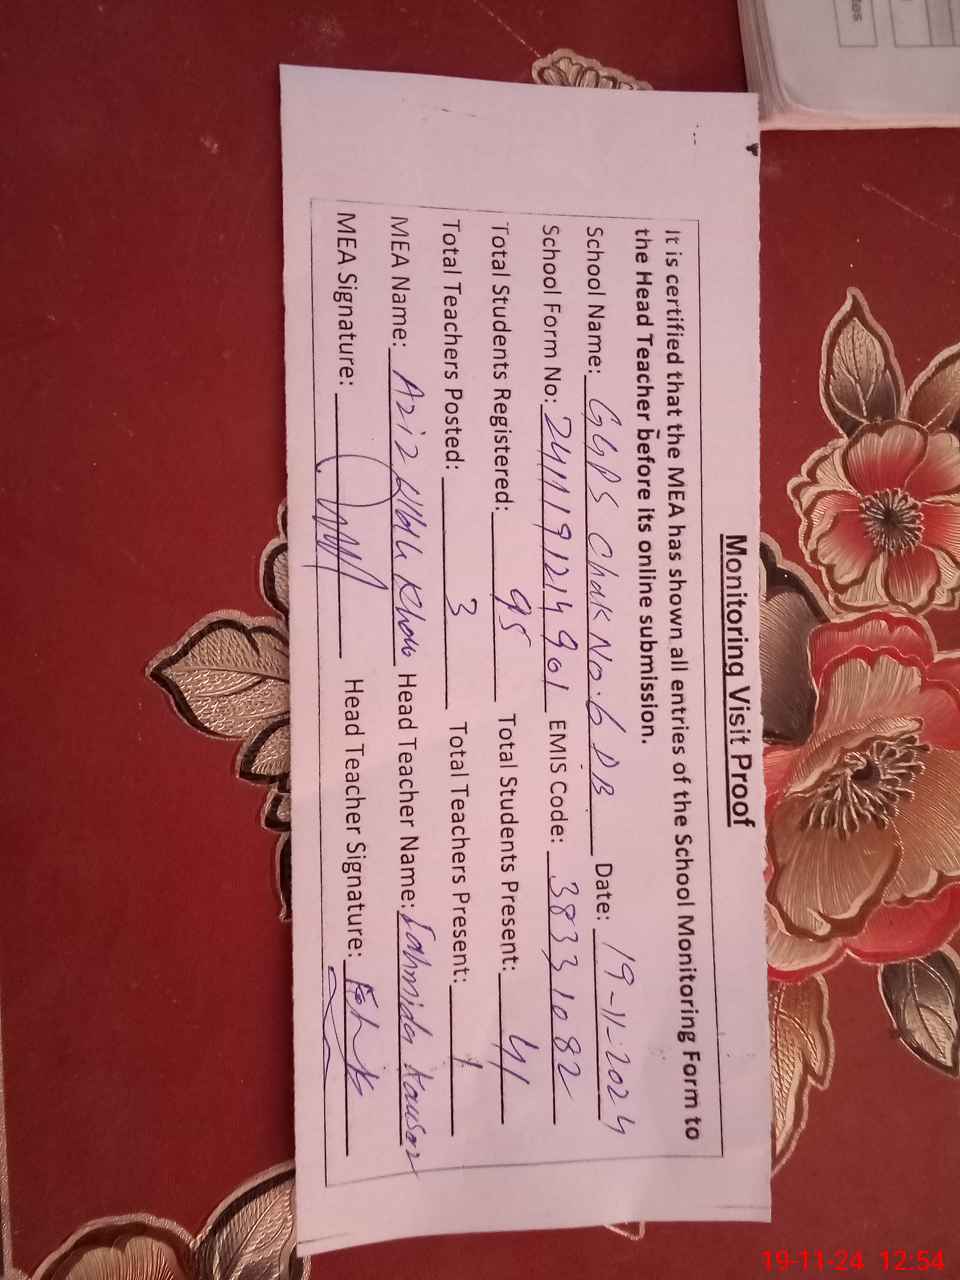 Monitoring Visit Proof
It is certified that the MEA has shown all entries of the School Monitoring Form to
the Head Teacher before its online submission.
School Name: GGPS Chak No. 6 DB Date: 19-11-2024
School Form No: EMIS Code: 38331082
Total Students Registered: 95 Total Students Present: 41
Total Teachers Posted: 3 Total Teachers Present: 1
MEA Name: Aziz Ullah Khan Head Teacher Name: Fahmida Kausar
MEA Signature: Head Teacher Signature:
19-11-24 12:54